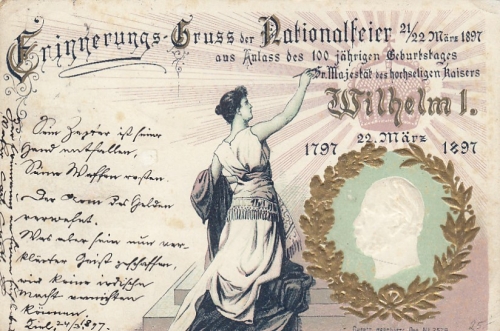 Erinnerungs-Gruss der Nationalfeier 21/22 März 1897
aus Anlass des 100 jährigen Geburtstages
Sr. Majestät des hochseligen Kaisers
Wilhelm I.
22. März
1797 1897
Sein Zepter ist seiner
Hand entfallen,
Seine Waffen rosten.
Der Arm des Helden
verwest.
Was aber sein nun ver-
klärter Geist geschaffen,
wird keine irdische
Macht vernichten
können.
Kiel, 24/3 97.